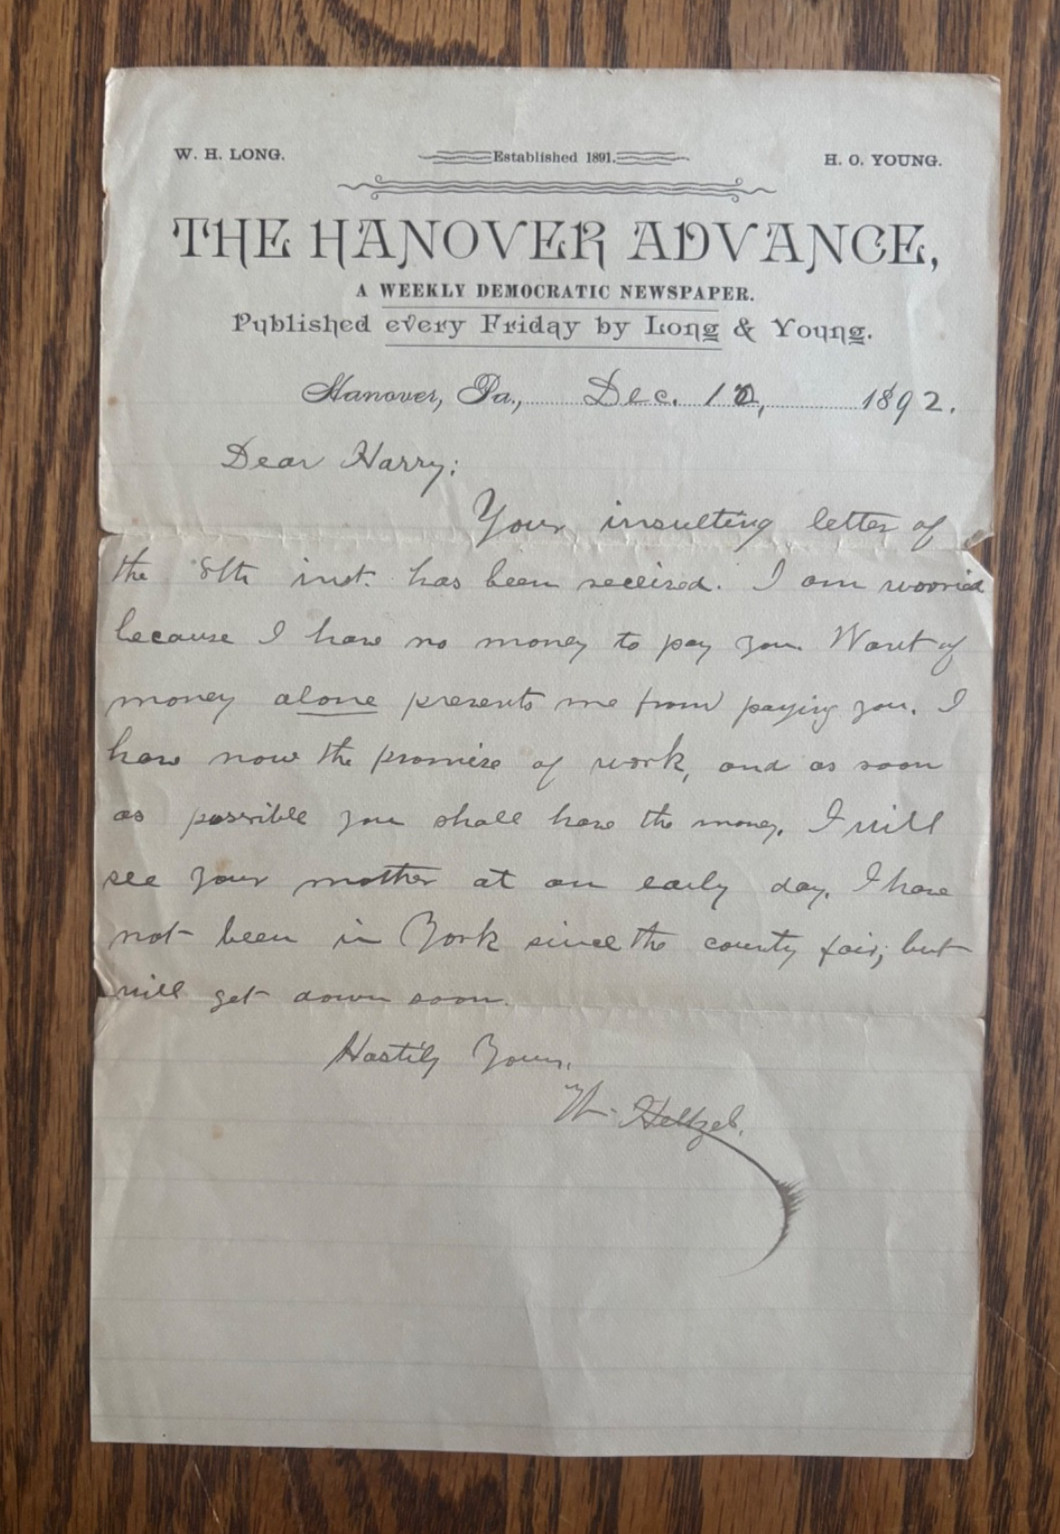 W. H. LONG. Established 1891. H. O. YOUNG.
THE HANOVER ADVANCE,
A WEEKLY DEMOCRATIC NEWSPAPER.
Published every Friday by Long & Young.
Hanover, Pa., Dec. 12, 1892.
Dear Harry:
Your insulting letter of
the 8th inst. has been received. I am worried
because I have no money to pay you. Want of
money alone prevents me from paying you. I
have now the promise of work, and as soon
as possible you shall have the money. I will
see your mother at an early day. I have
not been in York since the county fair; but
will get down soon.
Hastily Yours,
W. Heltzel.